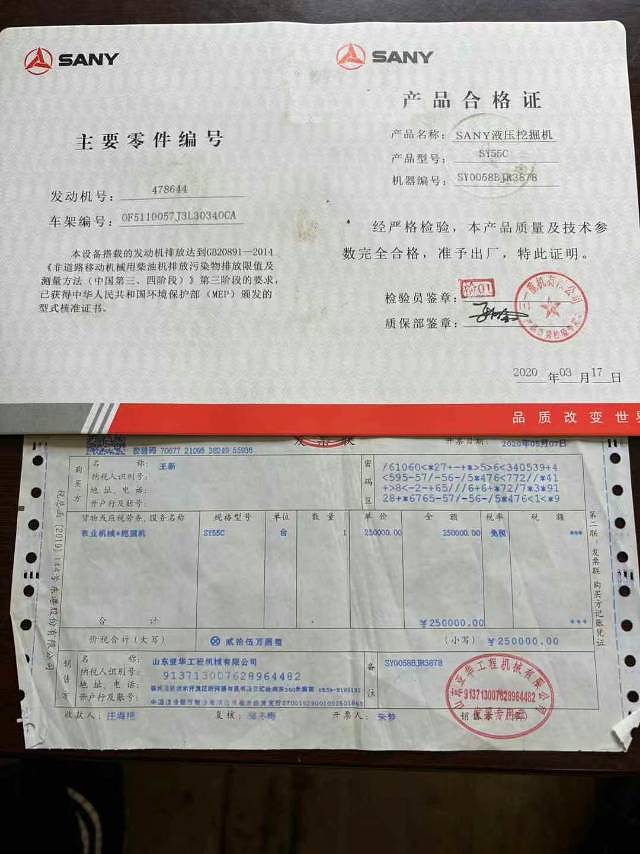 SANY
主要零件编号
发动机号: 478644
车架编号: 0F5110057J3L30340CA
本设备搭载的发动机排放达到GB20891-2014
《非道路移动机械用柴油机排放污染物排放限值及
测量方法（中国第三、四阶段）》第三阶段的要求,
已获得中华人民共和国环境保护部（MEP）颁发的
型式核准证书。
SANY
产品合格证
产品名称: SANY液压挖掘机
产品型号: SY55C
机器编号: SY0058BJR3878
经严格检验，本产品质量及技术参
数完全合格，准予出厂，特此证明。
检验员鉴章:
质保部鉴章:
2020 年 03 月 17 日
品质改变世界
校验码 70677 21098 38249 55938
发票联
开票日期: 2020年05月07日
购买方
名称: 王新
纳税人识别号:
地址、电话:
开户行及账号:
密码区
/61060<*27+-+*>5>6<340539+4
<595-57/-56-/5*476<772//*41
+>8<-2+65///6+6+72/7*3*91
28+*6765-57/-56-/5*476<1<*9
货物或应税劳务、服务名称 规格型号 单位 数量 单价 金额 税率 税额
农业机械*挖掘机 SY55C 台 1 250000.00 250000.00 免税 ***
合计 ￥250000.00 ***
价税合计（大写） ⊗ 贰拾伍万圆整 （小写） ￥250000.00
销售方
名称: 山东亚华工程机械有限公司
纳税人识别号: 913713007628964482
地址、电话:
开户行及账号:
备注
SY0058BJR3878
山东亚华工程机械有限公司
913713007628964482
发票专用章
收款人: 复核: 开票人: 朱梦
第二联：发票联 购买方记账凭证